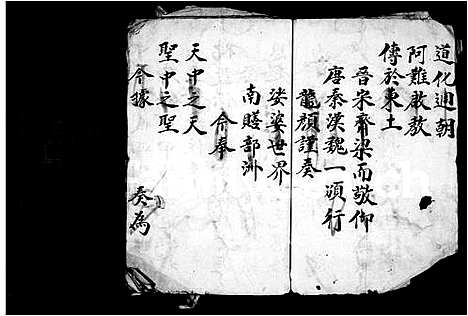 道化通朝
阿難啟教
傳於東土
晉宋齊梁而敬仰
唐秦漢魏一頒行
龍顏謹奏
娑婆世界
南贍部洲
今奉
天中之天
聖中之聖
今據
奏為